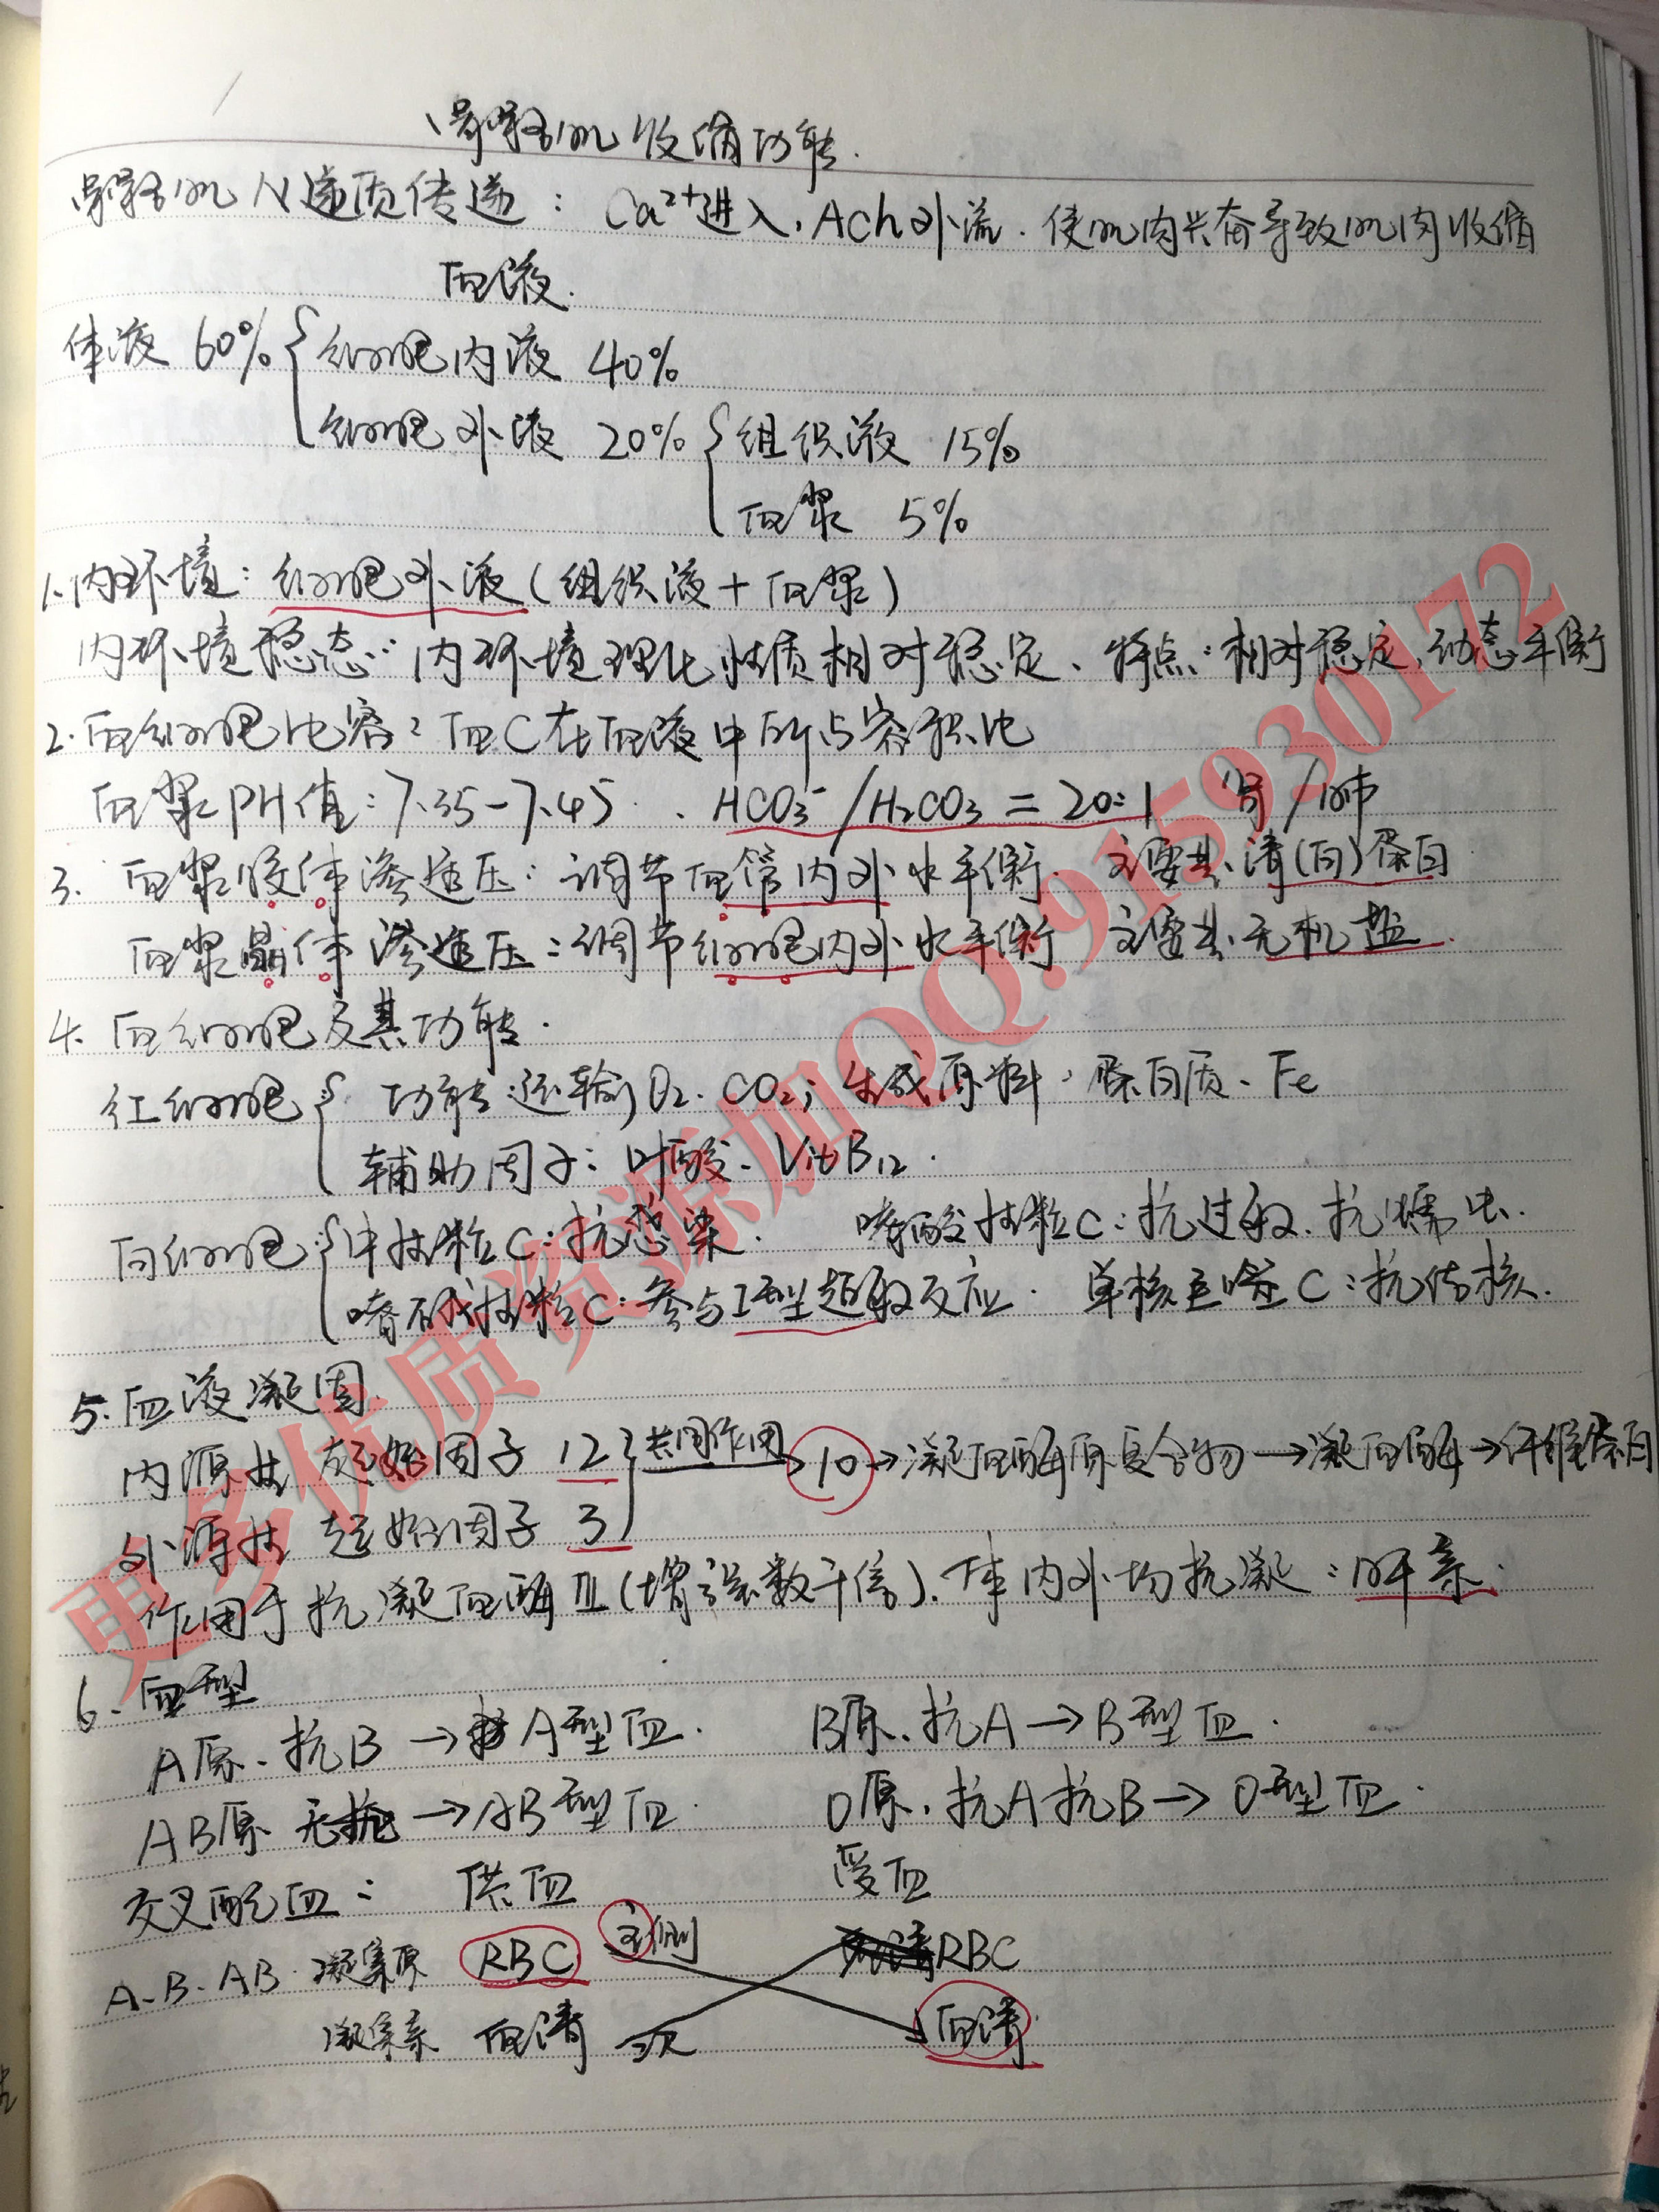 骨骼肌收缩功能.
骨骼肌N递质传递: Ca²⁺进入,ACh外流.使肌肉兴奋导致肌肉收缩
血液.
体液 60% { 细胞内液 40%
细胞外液 20% { 组织液 15%
血浆 5%
1.内环境:细胞外液(组织液+血浆)
内环境稳态:内环境理化性质相对稳定、特点:相对稳定,动态平衡
2.血细胞比容:血C在血液中所占容积比
血浆PH值:7.35-7.45. HCO₃⁻/H₂CO₃=20:1 肾/肺
3. 血浆胶体渗透压:调节血管内外水平衡. 主要其清(白)蛋白
血浆晶体渗透压:调节细胞内外水平衡 主要其无机盐.
4. 血细胞及其功能.
红细胞 { 功能:运输O₂.CO₂; 生成原料:蛋白质、Fe
辅助因子:叶酸、VitB₁₂.
白细胞 { 中性粒C:抗感染. 嗜酸性粒C:抗过敏.抗蠕虫.
嗜碱性粒C:参与I型超敏反应. 单核巨噬C:抗结核.
5.血液凝固.
内源性 起始因子 12 } 共同作用 → 10→凝血酶原复合物→凝血酶→纤维蛋白
外源性 起始因子 3
作用于抗凝血酶Ⅲ(增强数千倍).体内外均抗凝:肝素.
6.血型
A原、抗B→A型血. B原.抗A→B型血.
AB原 无抗→AB型血. O原.抗A抗B→O型血.
交叉配血: 供血 受血
A、B、AB 凝集原 RBC 主侧 RBC
凝集素 血清 次 血清
更多优质资源加QQ:915930172